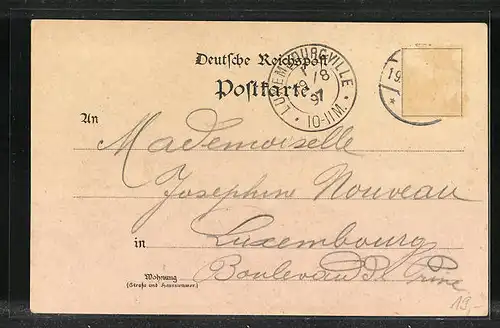 Deutsche Reichspost
Postkarte
LUXEMBOURG-VILLE
8
10-11M.
19
An
Mademoiselle
Josephine Nouveau
in Luxembourg
Wohnung Boulevard
(Straße und Hausnummer)
19,-